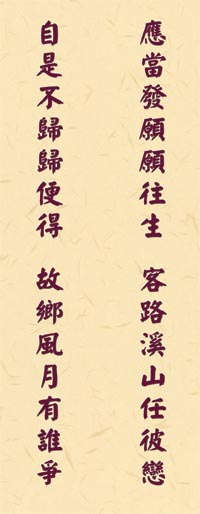 應當發願願往生　客路溪山任彼戀
自是不歸歸便得　故鄉風月有誰爭